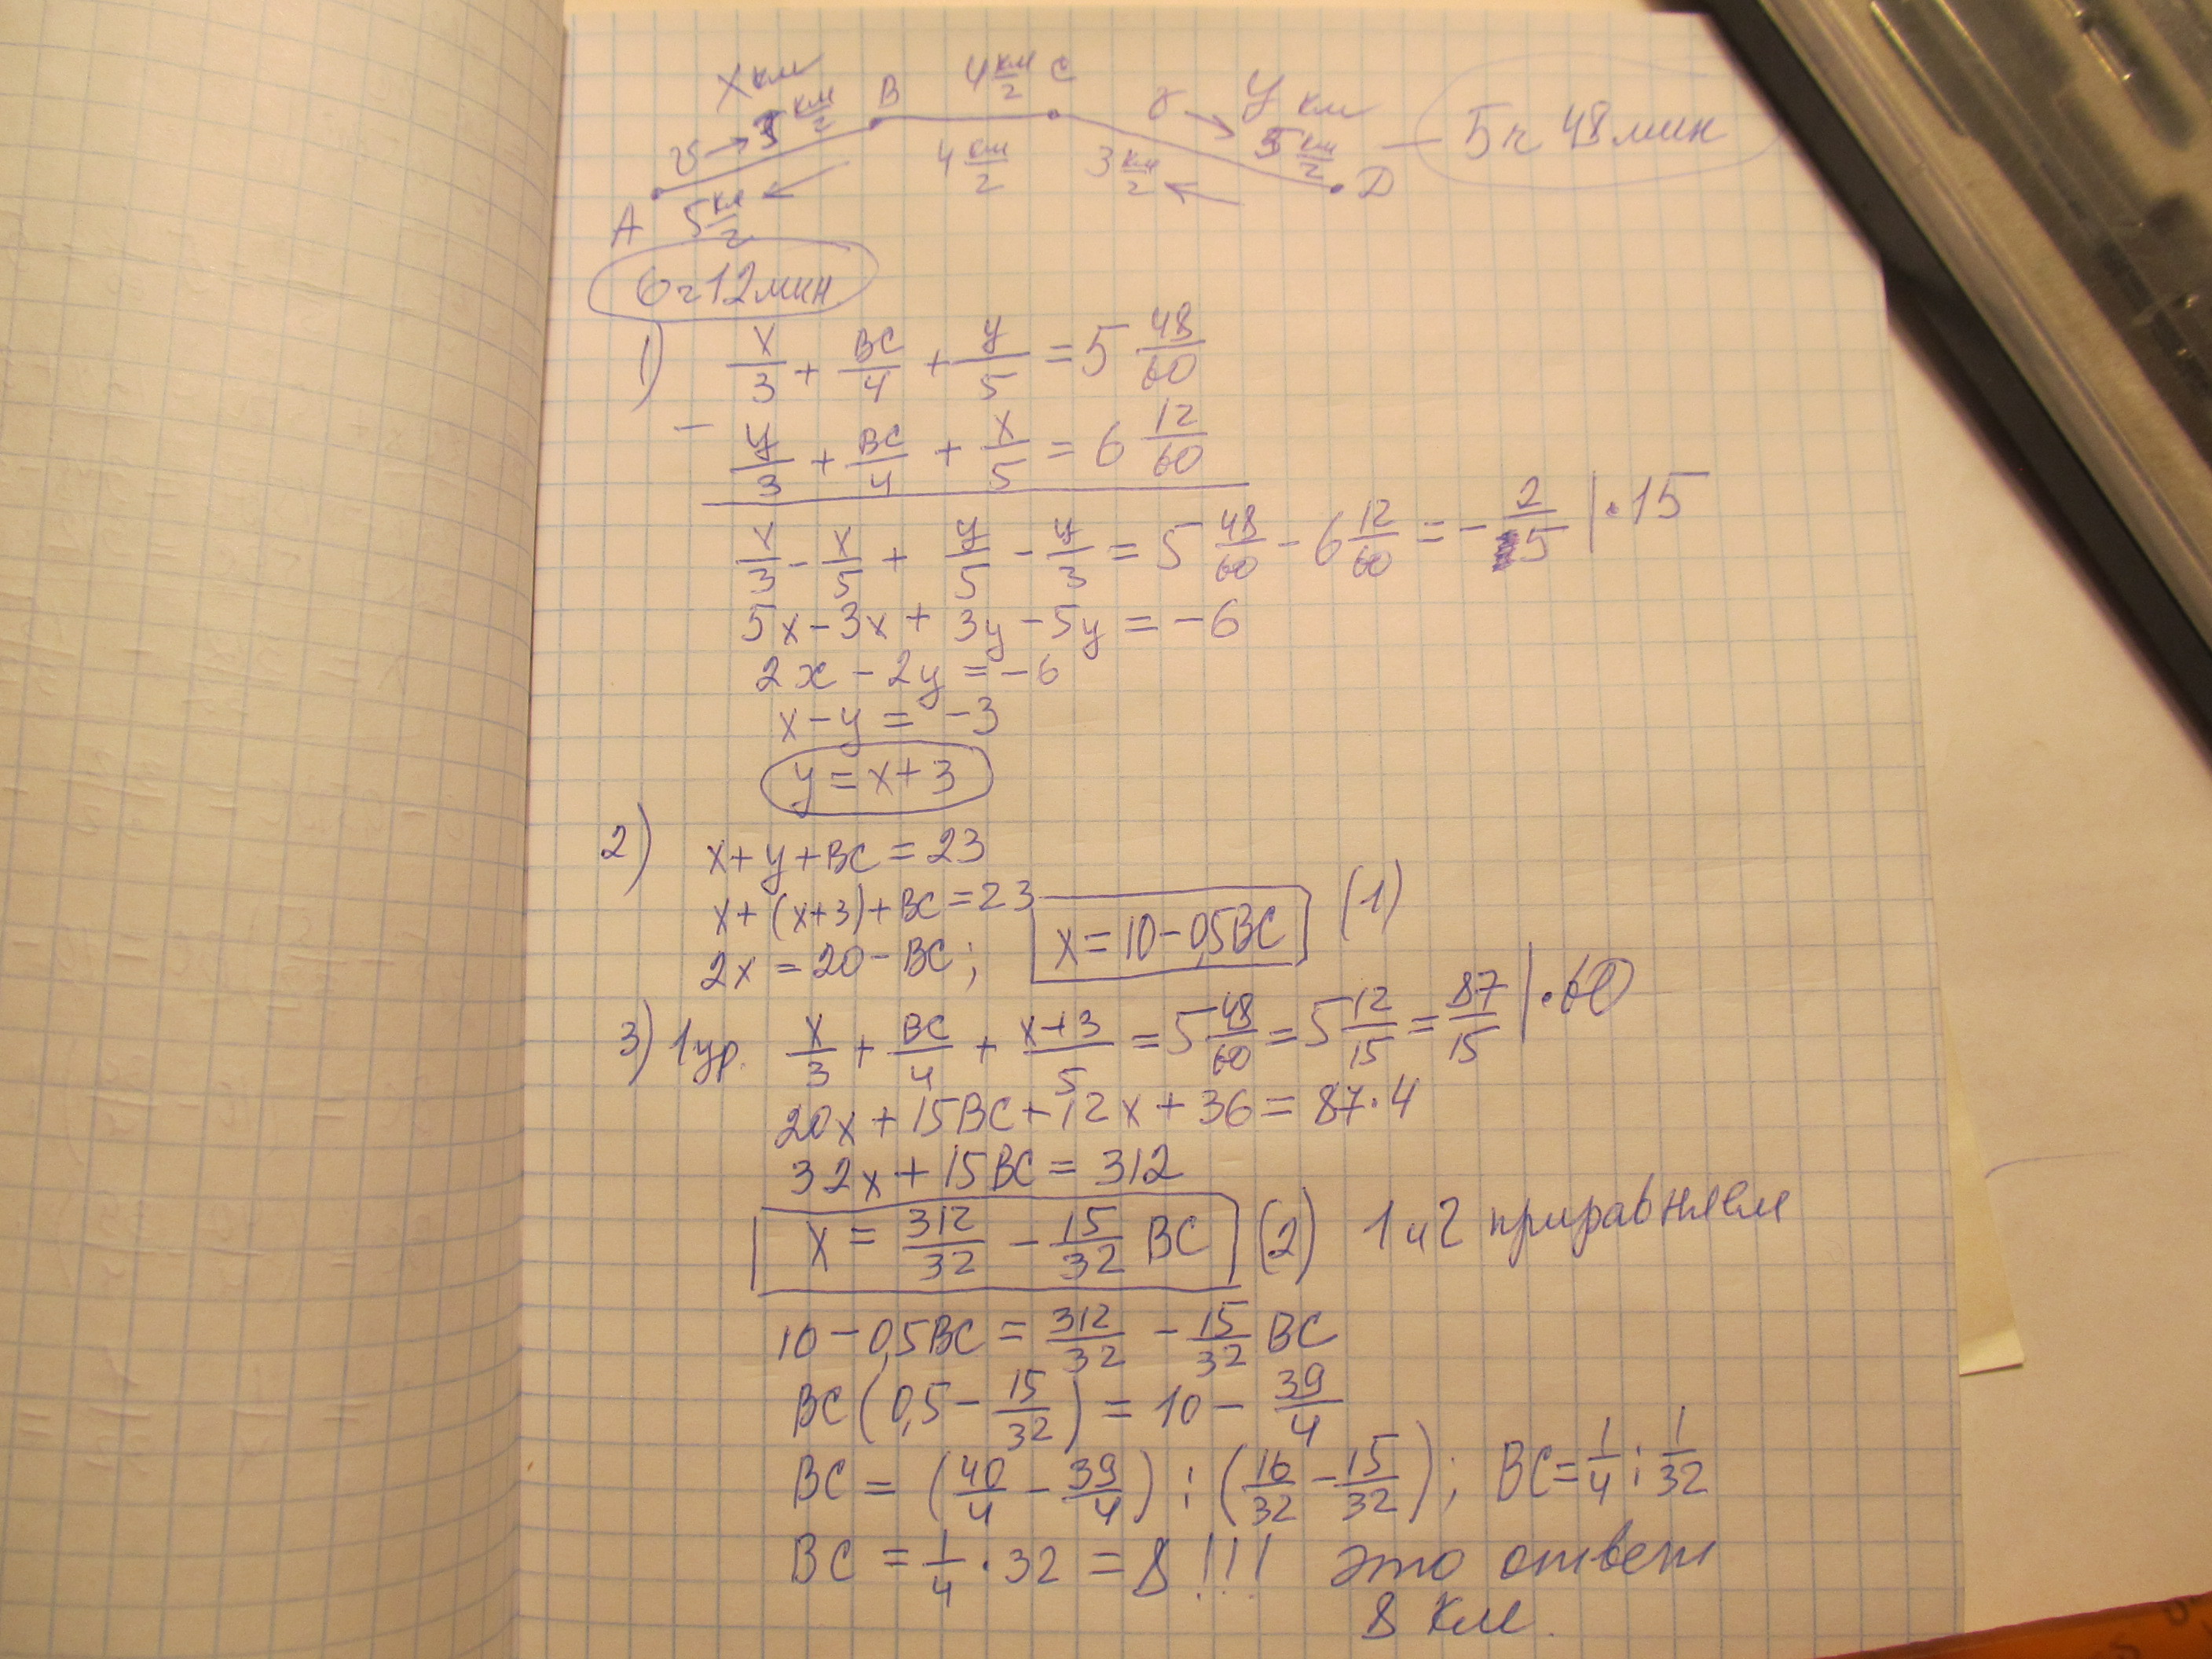 x км
υ → 3 км/г
B
4 км/г
C
υ → y км
5 км/г
5 г 48 мин
A
5 км/г
4 км/г
3 км/г
D
6 г 12 мин
1) x/3 + BC/4 + y/5 = 5 48/60
− y/3 + BC/4 + x/5 = 6 12/60
x/3 − x/5 + y/5 − y/3 = 5 48/60 − 6 12/60 = − 2/5 | · 15
5x − 3x + 3y − 5y = − 6
2x − 2y = − 6
x − y = − 3
y = x + 3
2) x + y + BC = 23
x + (x + 3) + BC = 23
2x = 20 − BC; x = 10 − 0,5BC (1)
3) 1 ур. x/3 + BC/4 + x+3/5 = 5 48/60 = 5 12/15 = 87/15 | · 60
20x + 15BC + 12x + 36 = 87 · 4
32x + 15BC = 312
x = 312/32 − 15/32 BC (2) 1 и 2 приравняем
10 − 0,5BC = 312/32 − 15/32 BC
BC (0,5 − 15/32) = 10 − 39/4
BC = (40/4 − 39/4) : (16/32 − 15/32); BC = 1/4 : 1/32
BC = 1/4 · 32 = 8 !!! это ответ
8 км.